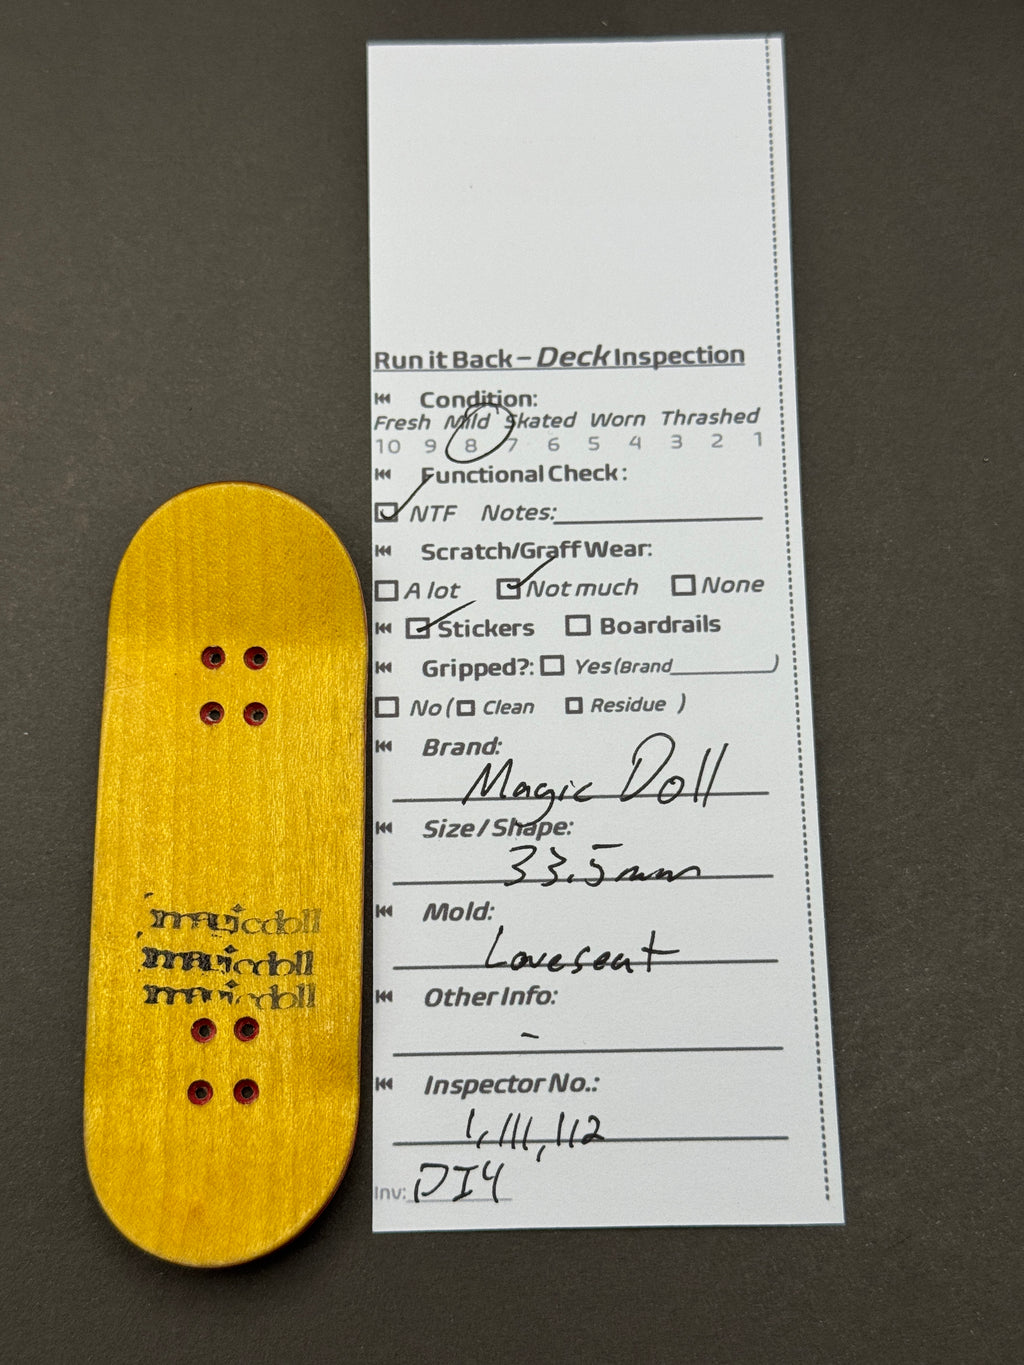 Run it Back – Deck Inspection
Condition:
Fresh Mild Skated Worn Thrashed
10 9 8 7 6 5 4 3 2 1
Functional Check:
NTF Notes:
Scratch/Graff Wear:
A lot Not much None
Stickers Boardrails
Gripped?: Yes (Brand )
No ( Clean Residue )
Brand:
Magic Doll
Size / Shape:
33.5mm
Mold:
Loveseat
Other Info:
-
Inspector No.:
1,111,112
Inv: DI4
magicdoll
magicdoll
magicdoll